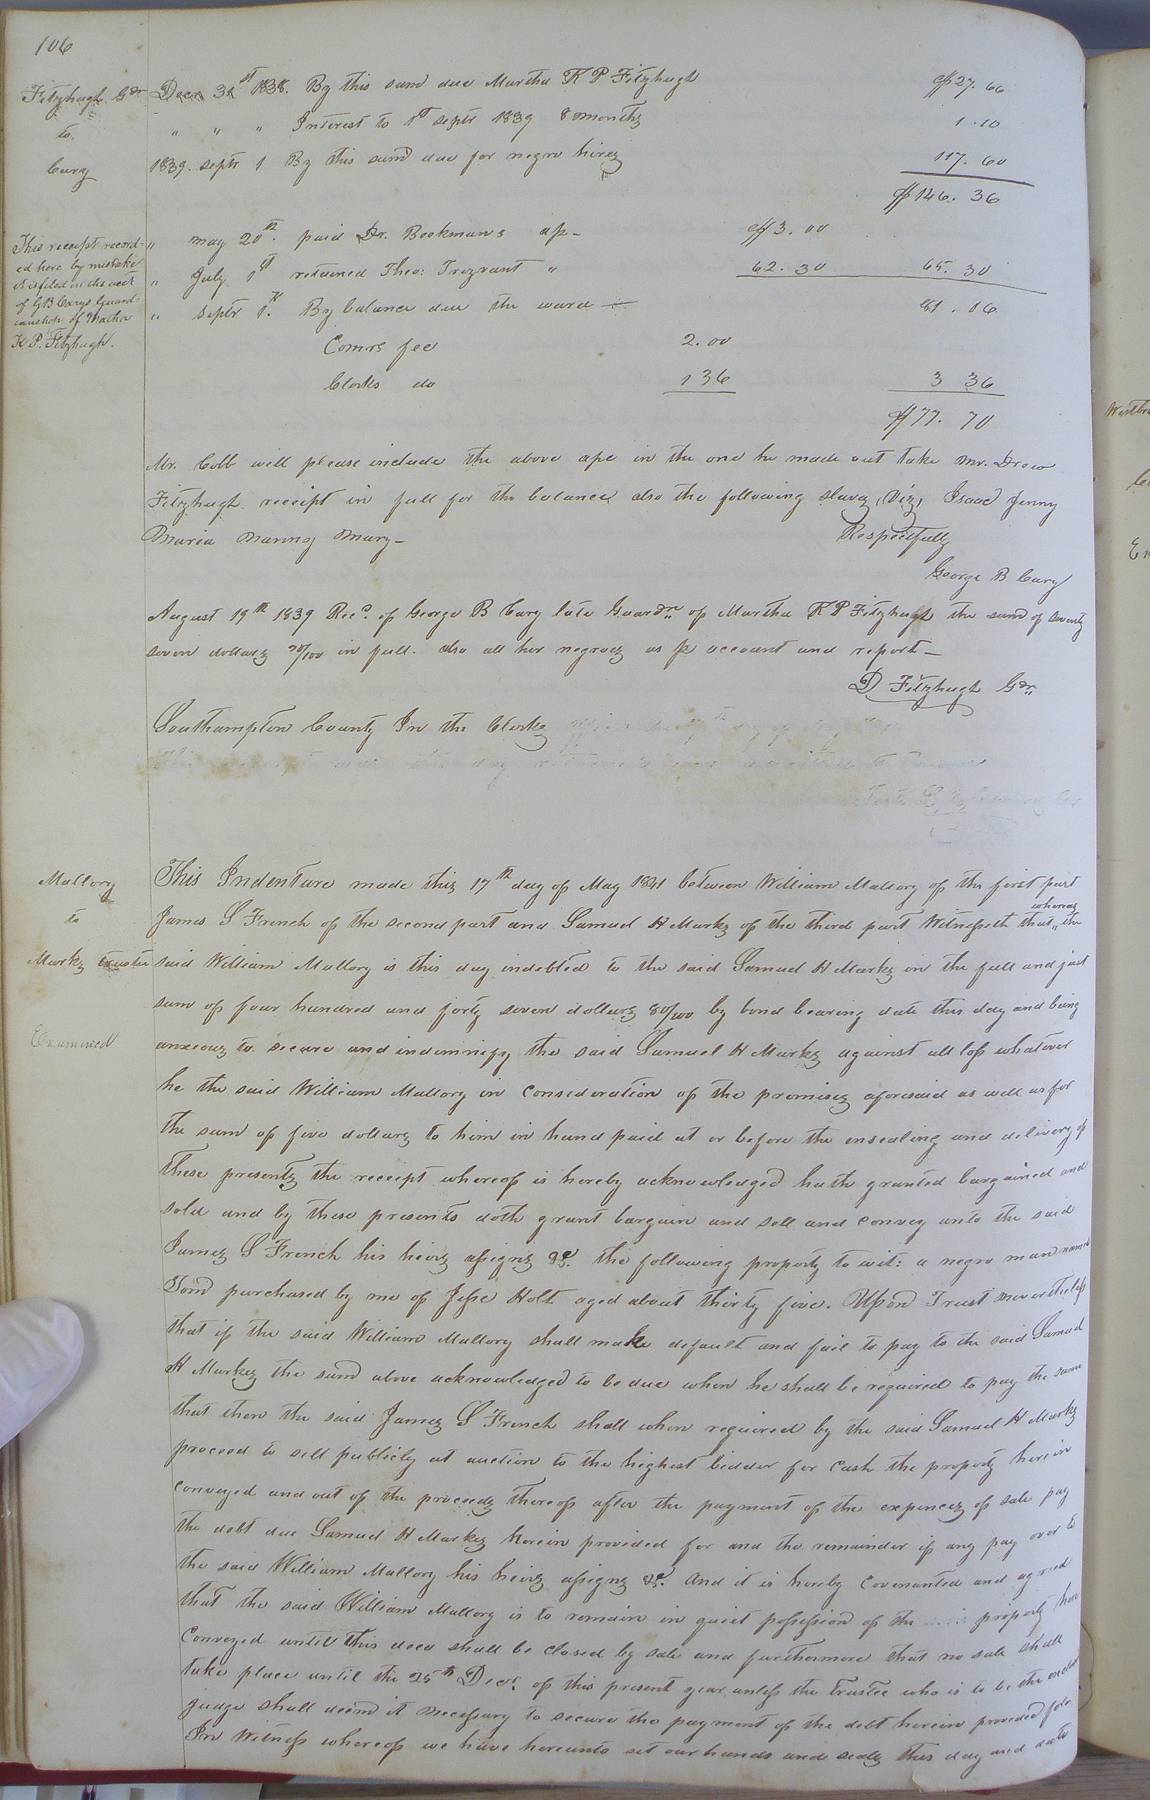 106
Fitzhugh Gdn
to
Cary
Decr 31st 1838. By this sum due Martha K P Fitzhugh $27.66
" " " Interest to 1st septr 1839 8 months 1.10
1839. septr 1 By this sum due for negro hires 117.60
$146.36
This receipt record-
ed here by mistake
it is filed in the acct
of GB Carys Guard-
ianship of Martha
K P. Fitzhugh.
" may 20th. paid Dr. Bookmans ap- $3.00
" July 1st returned Theo: Trezvant " 62.30 65.30
" septr 1st. By balance due the ward - 81.06
Comrs fee 2.00
Clerks do 1 36 3 36
$77.70
Mr. Cobb will please include the above apc in the one he made out take Mr. Drew
Fitzhugh receipt in full for the balance also the following slaves, (Viz) Isaac Jenny
Maria Mary-
Respectfully
George B Cary
August 19th 1839 Recd. of George B Cary late Guardn of Martha K P Fitzhugh the sum of seventy
seven dollars 70/100 in full. also all her negroes as pr account and report-
D Fitzhugh Gdn
Southampton County In the Clerks
Mallory
to
Marks trustee
Examined
This Indenture made this 17th day of May 1841 between William Mallory of the first part
James S French of the second part and Samuel H Marks of the third part Witnesseth that whereas the
said William Mallory is this day indebted to the said Samuel H Marks in the full and just
sum of four hundred and forty seven dollars 80/100 by bond bearing date this day and being
anxious to secure and indemnify the said Samuel H Marks against all loss whatever
he the said William Mallory in consideration of the promises aforesaid as well as for
the sum of five dollars to him in hand paid at or before the ensealing and delivery of
these presents the receipt whereof is hereby acknowledged hath granted bargained and
sold and by these presents doth grant bargain and sell and convey unto the said
James S French his heirs assigns &c. the following property to wit: a negro man named
Tom purchased by me of Jesse Holt aged about thirty five. Upon Trust nevertheless
that if the said William Mallory shall make default and fail to pay to the said Samuel
H Marks the sum above acknowledged to be due when he shall be required to pay the same
that then the said James S French shall when required by the said Samuel H Marks
proceed to sell publicly at auction to the highest bidder for cash the property herein
conveyed and out of the proceeds thereof after the payment of the expences of sale pay
the debt due Samuel H Marks herein provided for and the remainder if any pay over to
the said William Mallory his heirs assigns &c. And it is hereby covenanted and agreed
that the said William Mallory is to remain in quiet possession of the property here
conveyed until this deed shall be closed by sale and furthermore that no sale shall
take place until the 25th Decr. of this present year unless the trustee who is to be the
judge shall deem it necessary to secure the payment of the debt herein provided for
In Witness whereof we have hereunto set our hands and seals this day and date